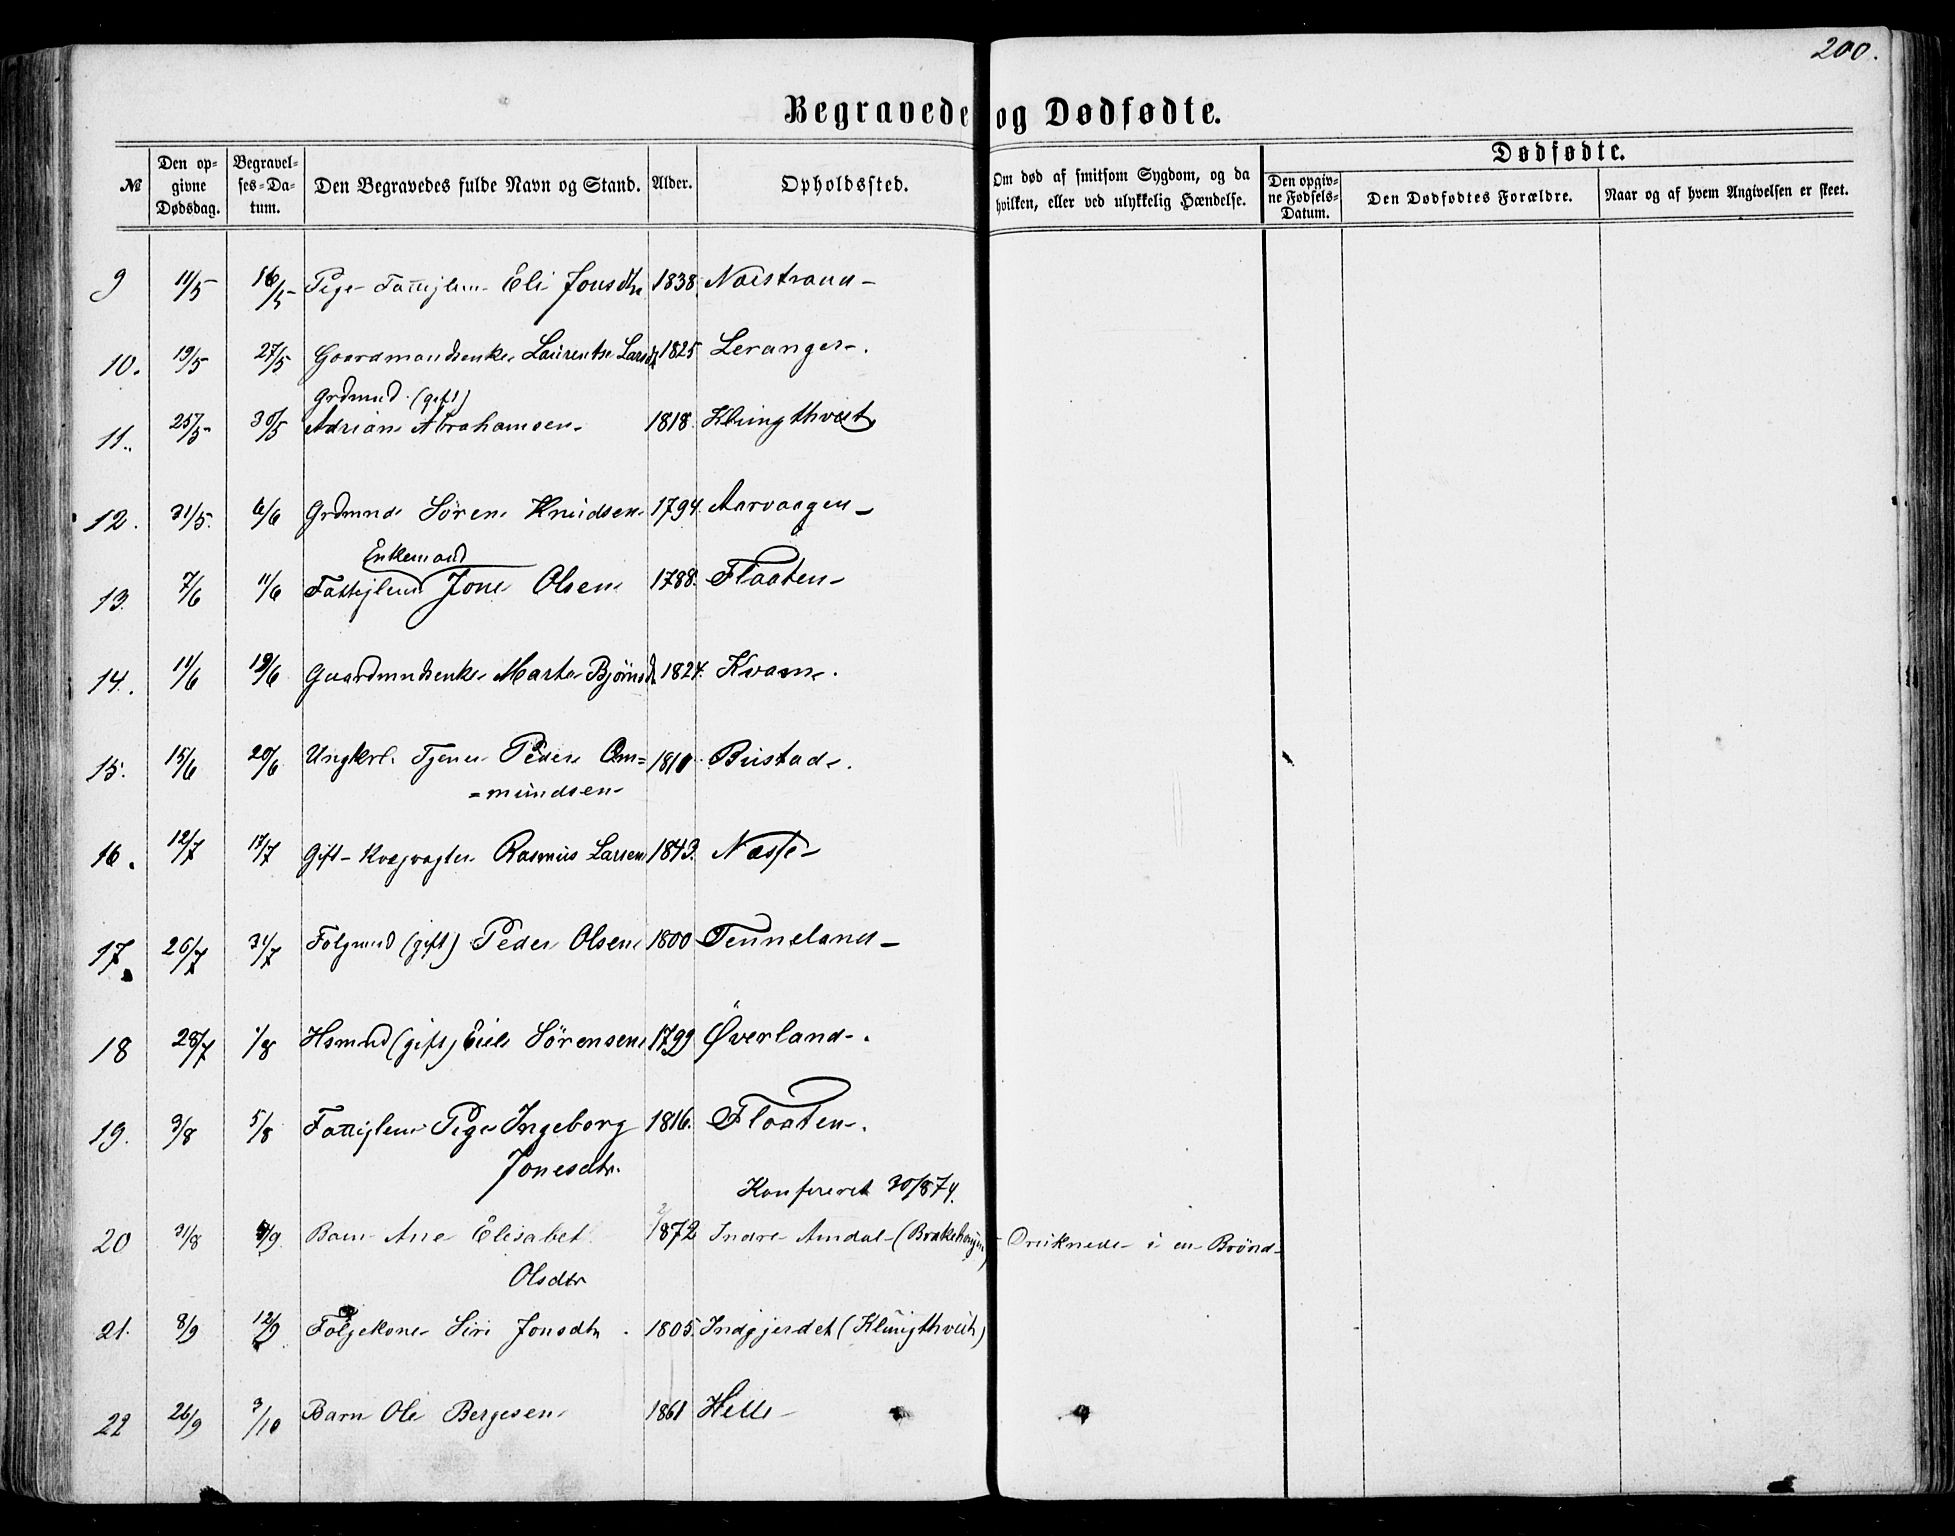 200.
Begravede og Dødfødte.
№ Den opgivne Dødsdag. Begravelses-Datum. Den Begravedes fulde Navn og Stand. Alder. Opholdssted. Om død af smitsom Sygdom, og da hvilken, eller ved ulykkelig Hændelse. Dødfødte. Den opgivne Fødsels-Datum. Den Dødfødtes Forældre. Naar og af hvem Angivelsen er skeet.
9 11/5 16/5 Pige Fattiglem Eli Jonsdtr 1838. Naistrand
10. 19/5 27/5 Gaardmandsenke Laurentse Larsdtr 1825 Leranger.
Grdmnd. (gift)
11. 25/5 30/5 Adrian Abrahamsen 1818. Klungthveit
12. 31/5. 6/6 Grdmnd Sören Knudsen 1794. Aarvaagen
Enkemand
13. 7/6 11/6 Fattiglem Jone Olsen 1788. Flaaten
14. 11/6 19/6 Gaardmndsenke Marta Bjørnsd 1824. Kvam.
15. 15/6 20/6 Ungkrl. Tjener Peder Om=
=mundsen 1810. Bustad.
16. 12/7 17/7 Gift Kvægvagter Rasmus Larsen 1843. Næsse
17. 26/7 31/7 Følgmnd (gift) Peder Olsen 1800 Tenneland
18 28/7 1/8 Hsmnd (gift) Eiel Sörensen 1799 Øverland.
19. 3/8 5/8 Fattiglem Pige Ingeborg
Jonesdtr. 1816. Flaaten.
Konfereret 30/874.
20 31/8 /9 Barn Ane Elisabet
Olsdtr 1872 Indre Amdal (Brakehaugen) Druknede i en Brönd
21. 8/9 12/9 Følgekone Siri Jonsdtr. 1805. Indgjerdet (Klungthveit)
22 26/9 3/10 Barn Ole Bergesen 1861 Helle